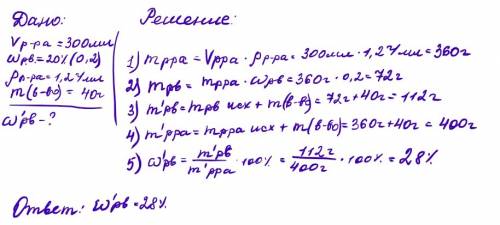 Дано:
Vр-ра = 300мл
ωрв. = 20% (0,2)
ρр-ра = 1,2 г/мл
m(в-во) = 40г
ω'рв - ?
Решение:
1) mрра = Vрра · ρр-ра = 300мл · 1,2 г/мл = 360г
2) mрв = mрра · ωрв = 360г · 0,2 = 72г
3) m'рв = mрв исх + m(в-во) = 72г + 40г = 112г
4) m'рра = mрра исх + m(в-во) = 360г + 40г = 400г
5) ω'рв = m'рв / m'рра · 100% = 112г / 400г · 100% = 28%
Ответ: ω'рв = 28%